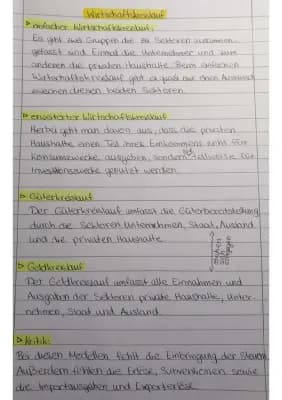 Wirtschaftskreislauf
▷ einfacher Wirtschaftskreislauf:
Es gibt zwei Gruppen die zu Sektoren zusammen-
gefasst sind. Einmal die Unternehmen und zum
anderen die privaten Haushalte. Beim einfachen
Wirtschaftskreislauf gibt es quasi nur einen Austausch
zwischen diesen beiden Sektoren.
▷ erweiterter Wirtschaftskreislauf
Hierbei geht man davon aus, dass die privaten
Haushalte einen Teil ihres Einkommens nicht für
Konsumzwecke ausgeben, sondern teilweise für
Investitionszwecke genutzt werden.
▷ Güterkreislauf
Der Güterkreislauf umfasst die Güterbereitstellung
durch die Sektoren Unternehmen, Staat, Ausland
und die privaten Haushalte.
▷ Geldkreislauf
Der Geldkreislauf umfasst alle Einnahmen und
Ausgaben der Sektoren private Haushalte, Unter-
nehmen, Staat und Ausland.
▷ Kritik:
Bei diesen Modellen fehlt die Einbringung der Steuern.
Außerdem fehlen die Erlöse, Subventionen sowie
die Importausgaben und Exporterlöse.